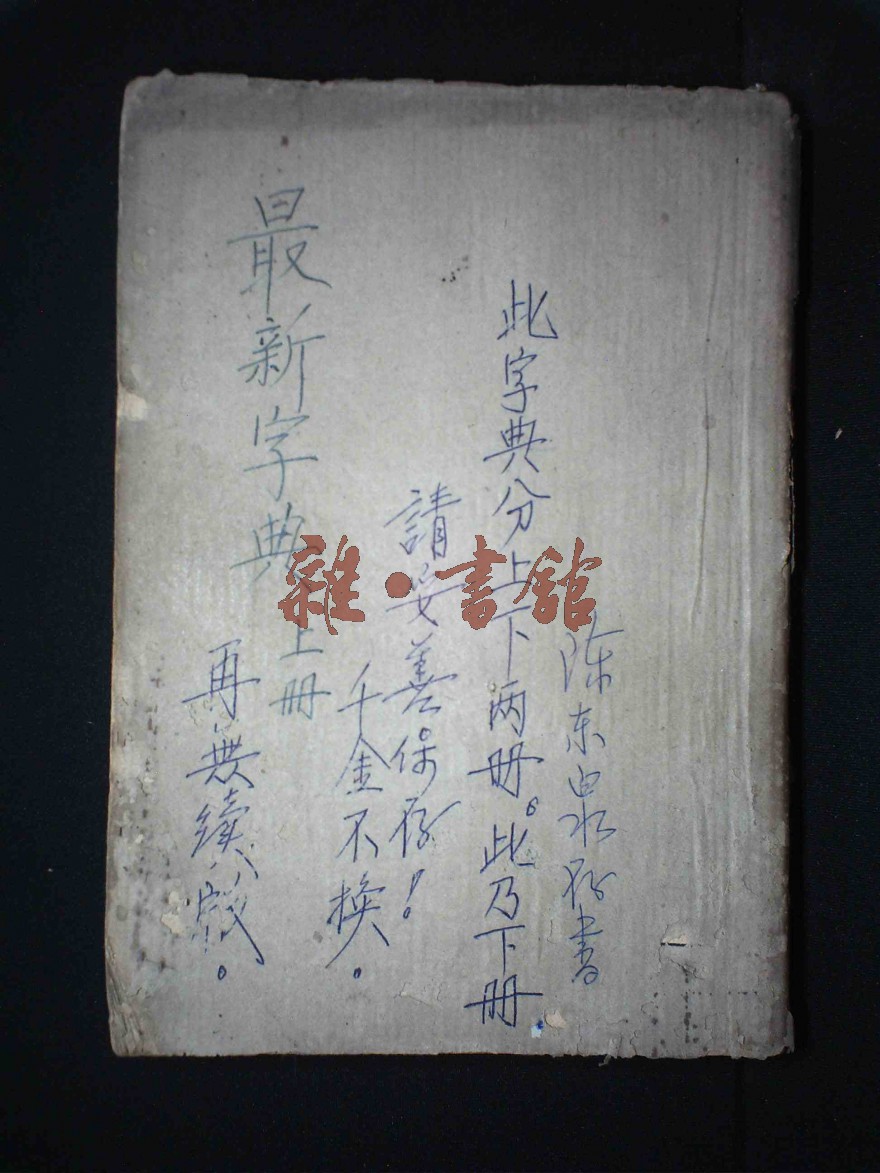 陈东泉存書
此字典分上下两册。此乃下册
請妥善保存！
千金不换。
最新字典上册
再無續
雜·書館